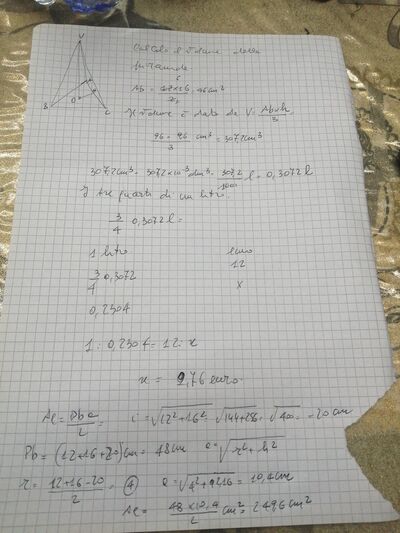 V
B
C
Calcolo il volume della
piramide
Ab = 12×16 = 96 cm²
6
Il volume è dato da V = Ab×h
3
96 × 96 cm³ = 3072 cm³
3
3072 cm³ = 3072 × 10⁻³ dm³ = 3072 l = 0,3072 l
1000
I tre quarti di un litro
3 0,3072 l =
4
1 litro euro
12
3 0,3072 x
4
0,2304
1 : 0,2304 = 12 : x
x = 2,76 euro
Al = Pb a i = √12² + 16² = √144+256 = √400 = 20 cm
2
Pb = (12+16+20) cm = 48 cm a = √r² + h²
r = 12+16-20 = 4 a = √4² + 9216 =
2
Al = cm² = 2496 cm²
2